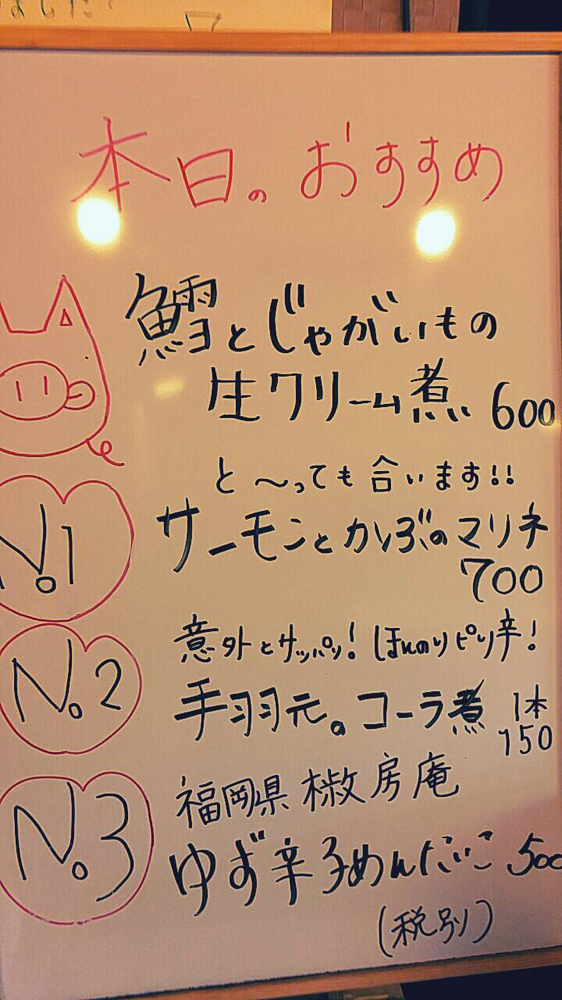 本日のおすすめ
鱈とじゃがいもの
生クリーム煮 600
と〜っても合います!!
No.1
サーモンとかぶのマリネ
700
意外とサッパリ!ほんのりピリ辛!
No.2
手羽元のコーラ煮 1本
150
福岡県 椒房庵
No.3
ゆず辛子めんたいこ 500
(税別)